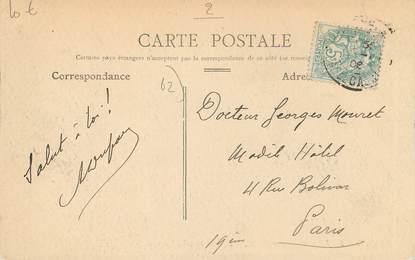 10 €
2
CARTE POSTALE
Certains pays étrangers n'acceptent pas la correspondance de ce côté (se renseigner
Correspondance
Adres
62
Salut à toi!
Docteur Georges Mouret
Modil Hôtel
4 Rue Bolivar
Paris
19ème